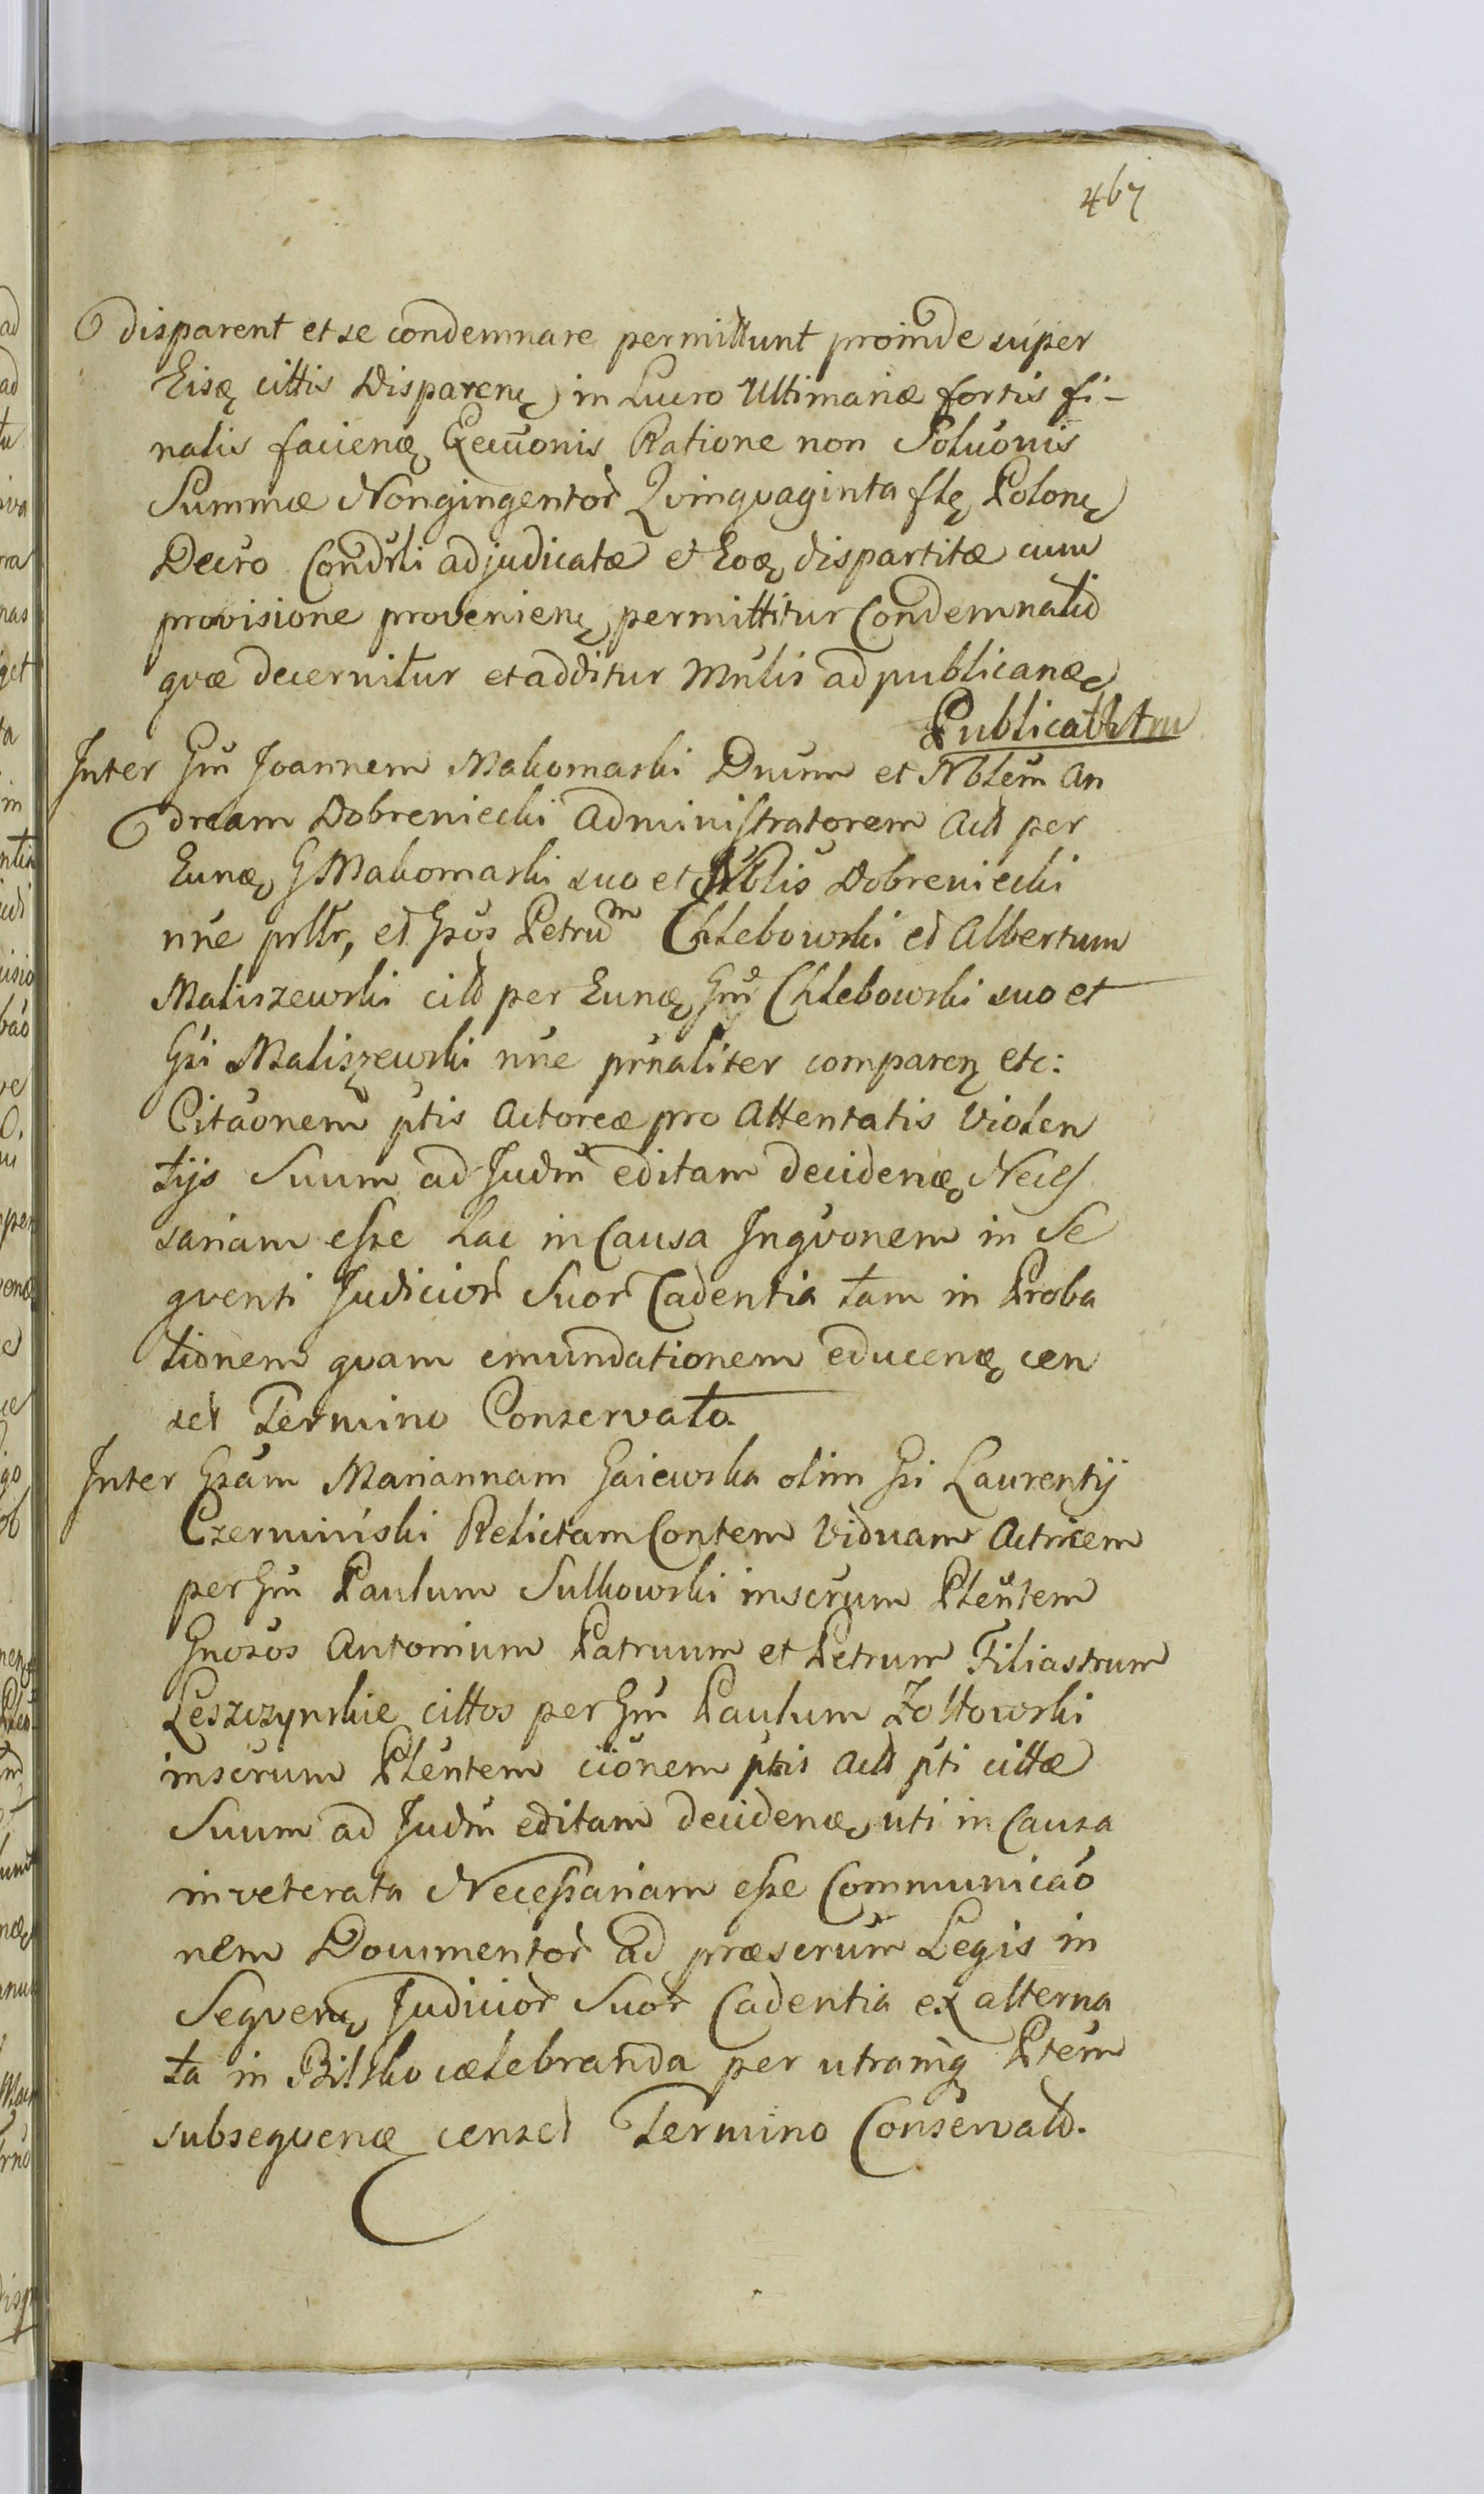 467
disparent et se condemnare permittunt proinde super
Eisą cittis Disparenę in Lucro Ultimariæ fortis fi-
nalis facienæ Execuonis Ratione non Soluonis
Summæ Nongingentor Qvinqvaginta flę Polonę
Decro Condrli adjudicatæ et Eoą dispartitæ cum
provisione provenienę permittitur Condemnatio
qvæ decernitur et additur Mnlis ad publicanæ
Publicatt
Inter Gm Joannem Makomaski Dnum et Nblem An
dream Dobreniecki Administratorem Act per
Eunæ G Makomaski suo et Nblis Dobreniecki
nne prllr, et Gsos Petrum Chlebowski et Albertum
Maliszewski citt per Eunæ Gm Chlebowski suo et
Gsi Maliszewski nne prnaliter comparen etc:
Citaonem ptis Actoreæ pro Attentatis Violen
tijs Suum ad Judm editam decidenæ Necess
sariam esse hac in Causa Inqvonem in Se
qventi Judicior Suor Cadentia tam in Proba
tionem qvam emundationem educenæ cen
set Termino Conservato
Inter Gsam Mariannam Gaiewska olim Gsi Laurentij
Czerwiński Relictam Contem Viduam Actricem
per Gm Paulum Sulkowski inscrum Plentem
Gnosos Antonium Patruum et Petrum Filiastrum
Leszczynskie cittos per Gm Paulum Zoltowski
inscrum Plentem cionem ptis Act pti cittæ
Suum ad Judm editam decidenæ uti in Causa
inveterata Necessariam esse Communicao
nem Documentor ad præscrum Legis in
Seqvenę Judicior Suor Cadentia ex alterna
ta in Bilsko cælebranda per utramq Ptem
subseqvenæ censet Termino Conservato.